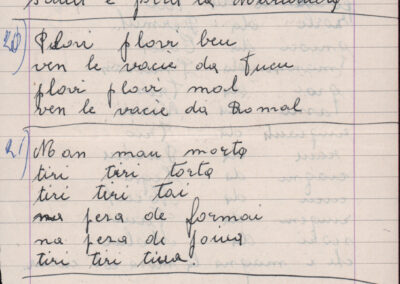 20) Plovi plovi beu
ven le vacie da Tucu
plovi plovi mol
ven le vacie da Romal
21) Man man morta
tiri tiri torta
tiri tiri tai
pera de formai
na pera de joiva
tiri tiri tiva.